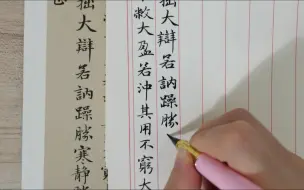 拙大辯若訥躁勝
敝大盈若沖其用不窮大
拙大辯若訥躁勝寒靜勝